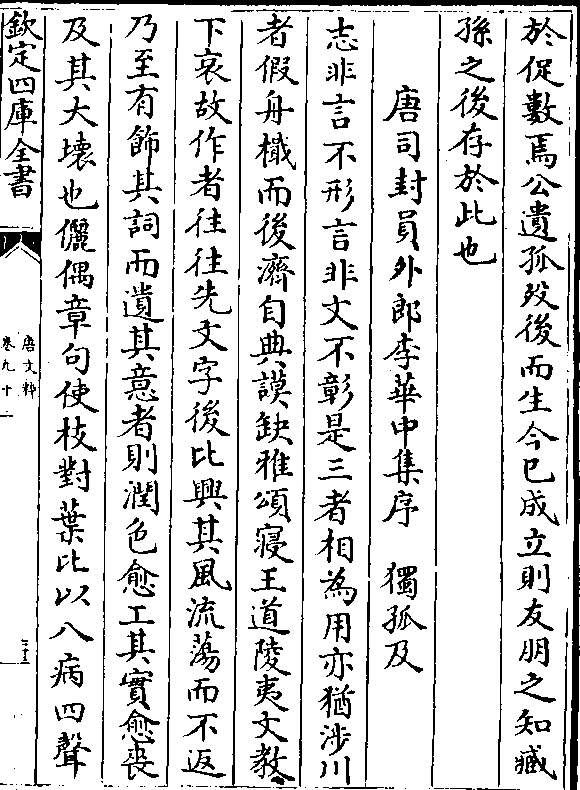 於促數焉公遺孤歿後而生今已成立則友朋之知臧
孫之後存於此也
唐司封員外郎李華中集序　獨孤及
志非言不形言非文不彰是三者相為用亦猶涉川
者假舟檝而後濟自典謨缺雅頌寢王道陵夷文教
下衰故作者往往先文字後比興其風流蕩而不返
乃至有飾其詞而遺其意者則潤色愈工其實愈喪
及其大壞也儷偶章句使枝對葉比以八病四聲
欽定四庫全書
唐文粹
卷九十二